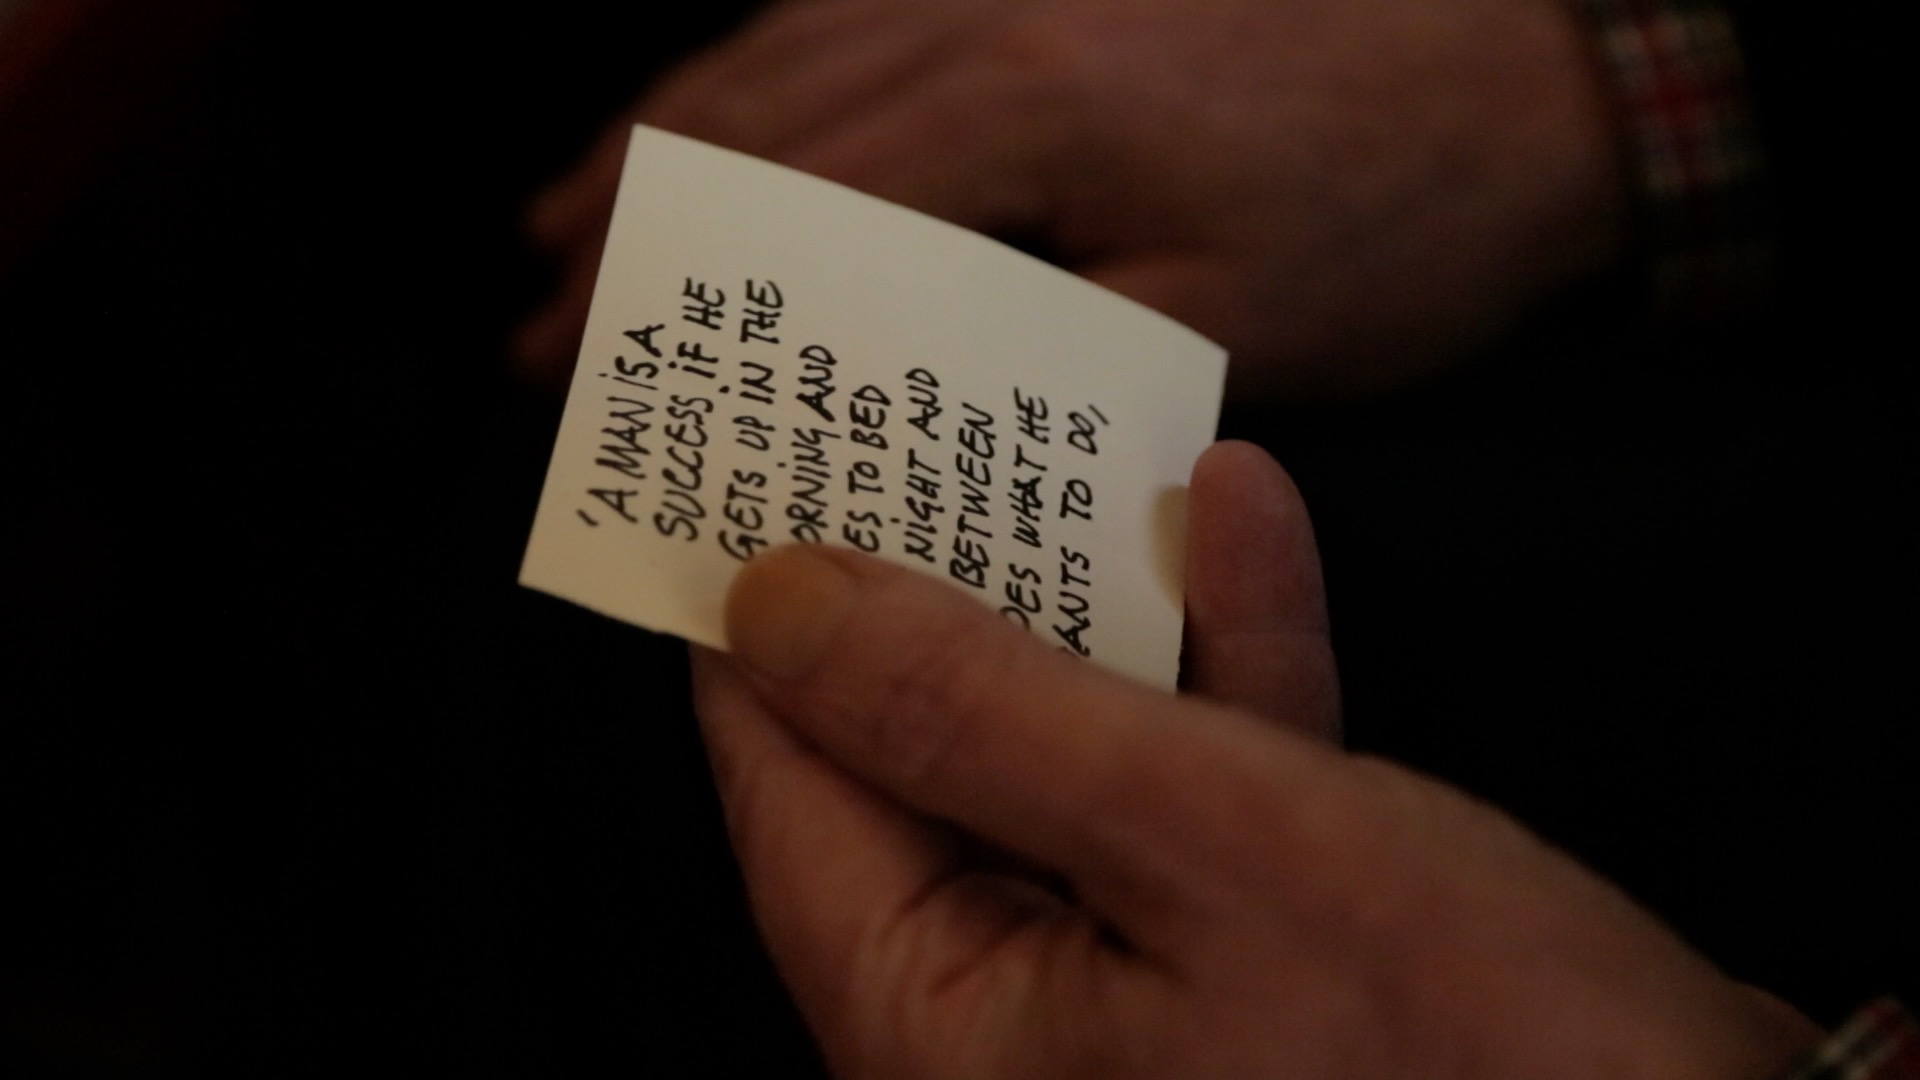 'A MAN iS A
SUCCESS iF HE
GETS UP IN THE
ORNING AND
ES TO BED
NiGHT AND
BETWEEN
OES WHAT HE
ANTS TO DO,